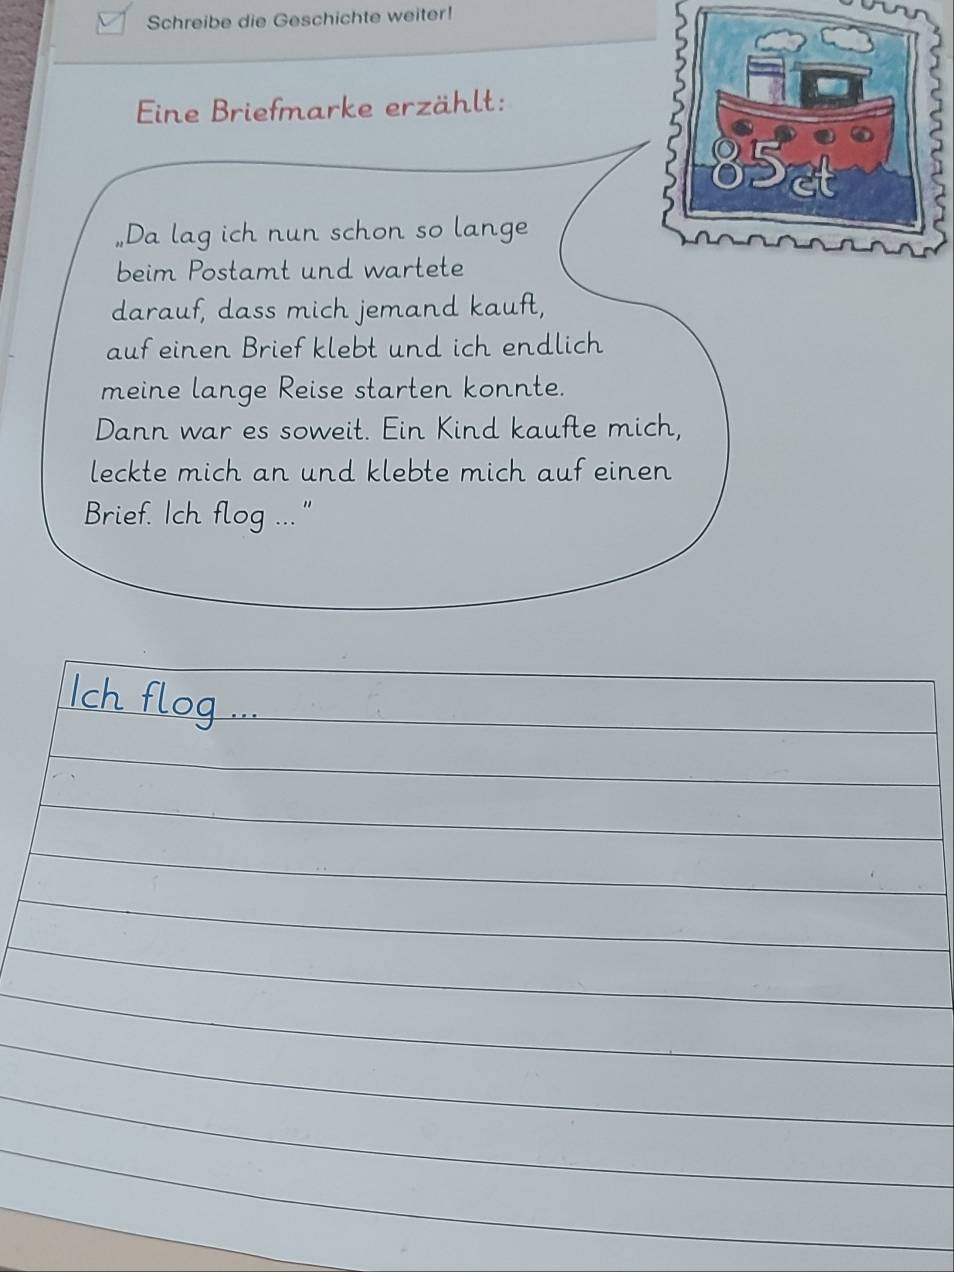 Schreibe die Geschichte weiter!
Eine Briefmarke erzählt:
85 ct
„Da lag ich nun schon so lange
beim Postamt und wartete
darauf, dass mich jemand kauft,
auf einen Brief klebt und ich endlich
meine lange Reise starten konnte.
Dann war es soweit. Ein Kind kaufte mich,
leckte mich an und klebte mich auf einen
Brief. Ich flog ..."
Ich flog ...